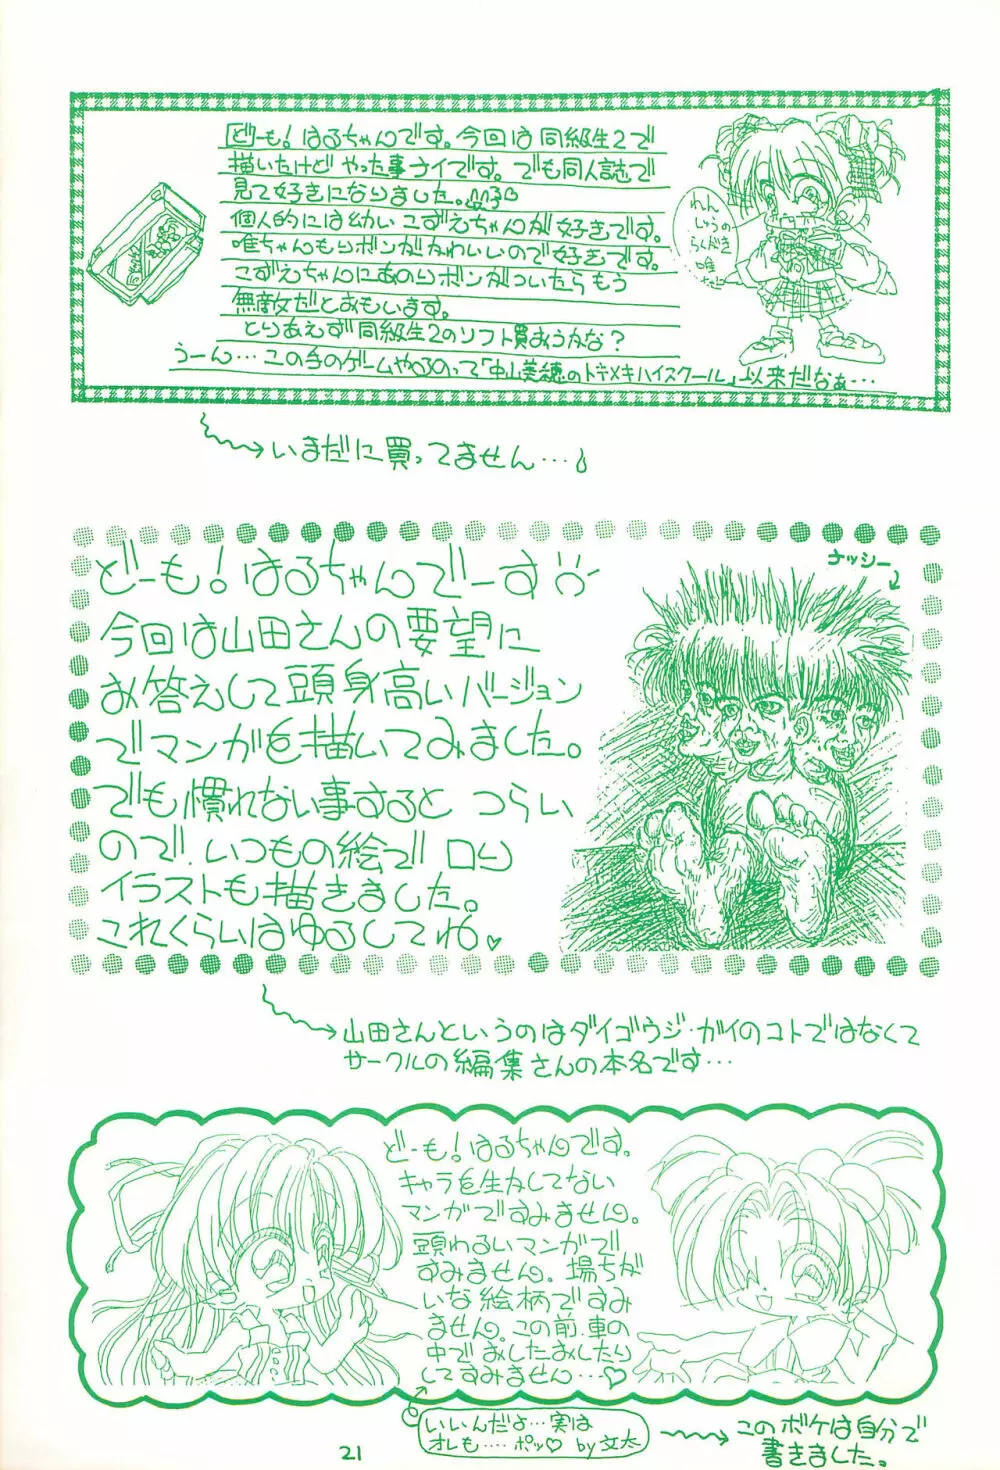 どーも!はるちゃんです。今回は同級生2で
描いたけどやった事ナイです。でも同人誌で
見て好きになりました。
個人的には幼いこずえちゃんが好きです。
唯ちゃんもリボンがかわいいので好きです。
こずえちゃんにあのリボンがついたらもう
無敵だとおもいます。
とりあえず同級生2のソフト買おうかな?
うーん…この手のゲームやるのって「中山美穂のトキメキハイスクール」以来だなぁ…
れん
しゅうの
らくがき
唯
いまだに買ってません…
どーも!はるちゃんでーす
今回は山田さんの要望に
お答えして頭身高いバージョン
でマンガを描いてみました。
でも慣れない事すると つらい
ので、いつもの絵で ロリ
イラストも描きました。
これくらいはゆるしてね
ナッシー
山田さんというのはダイゴウジ・ガイのコトではなくて
サークルの編集さんの本名です…
どーも!はるちゃんです。
キャラを生かしてない
マンガですみません。
頭わるいマンガで
すみません。場ちが
いな絵柄ですみ
ません。この前、車の
中でおしたおしたり
してすみません…♡
いいんだよ…実は
オレも…ポッ♡ by 文太
このボケは自分で
書きました。
21